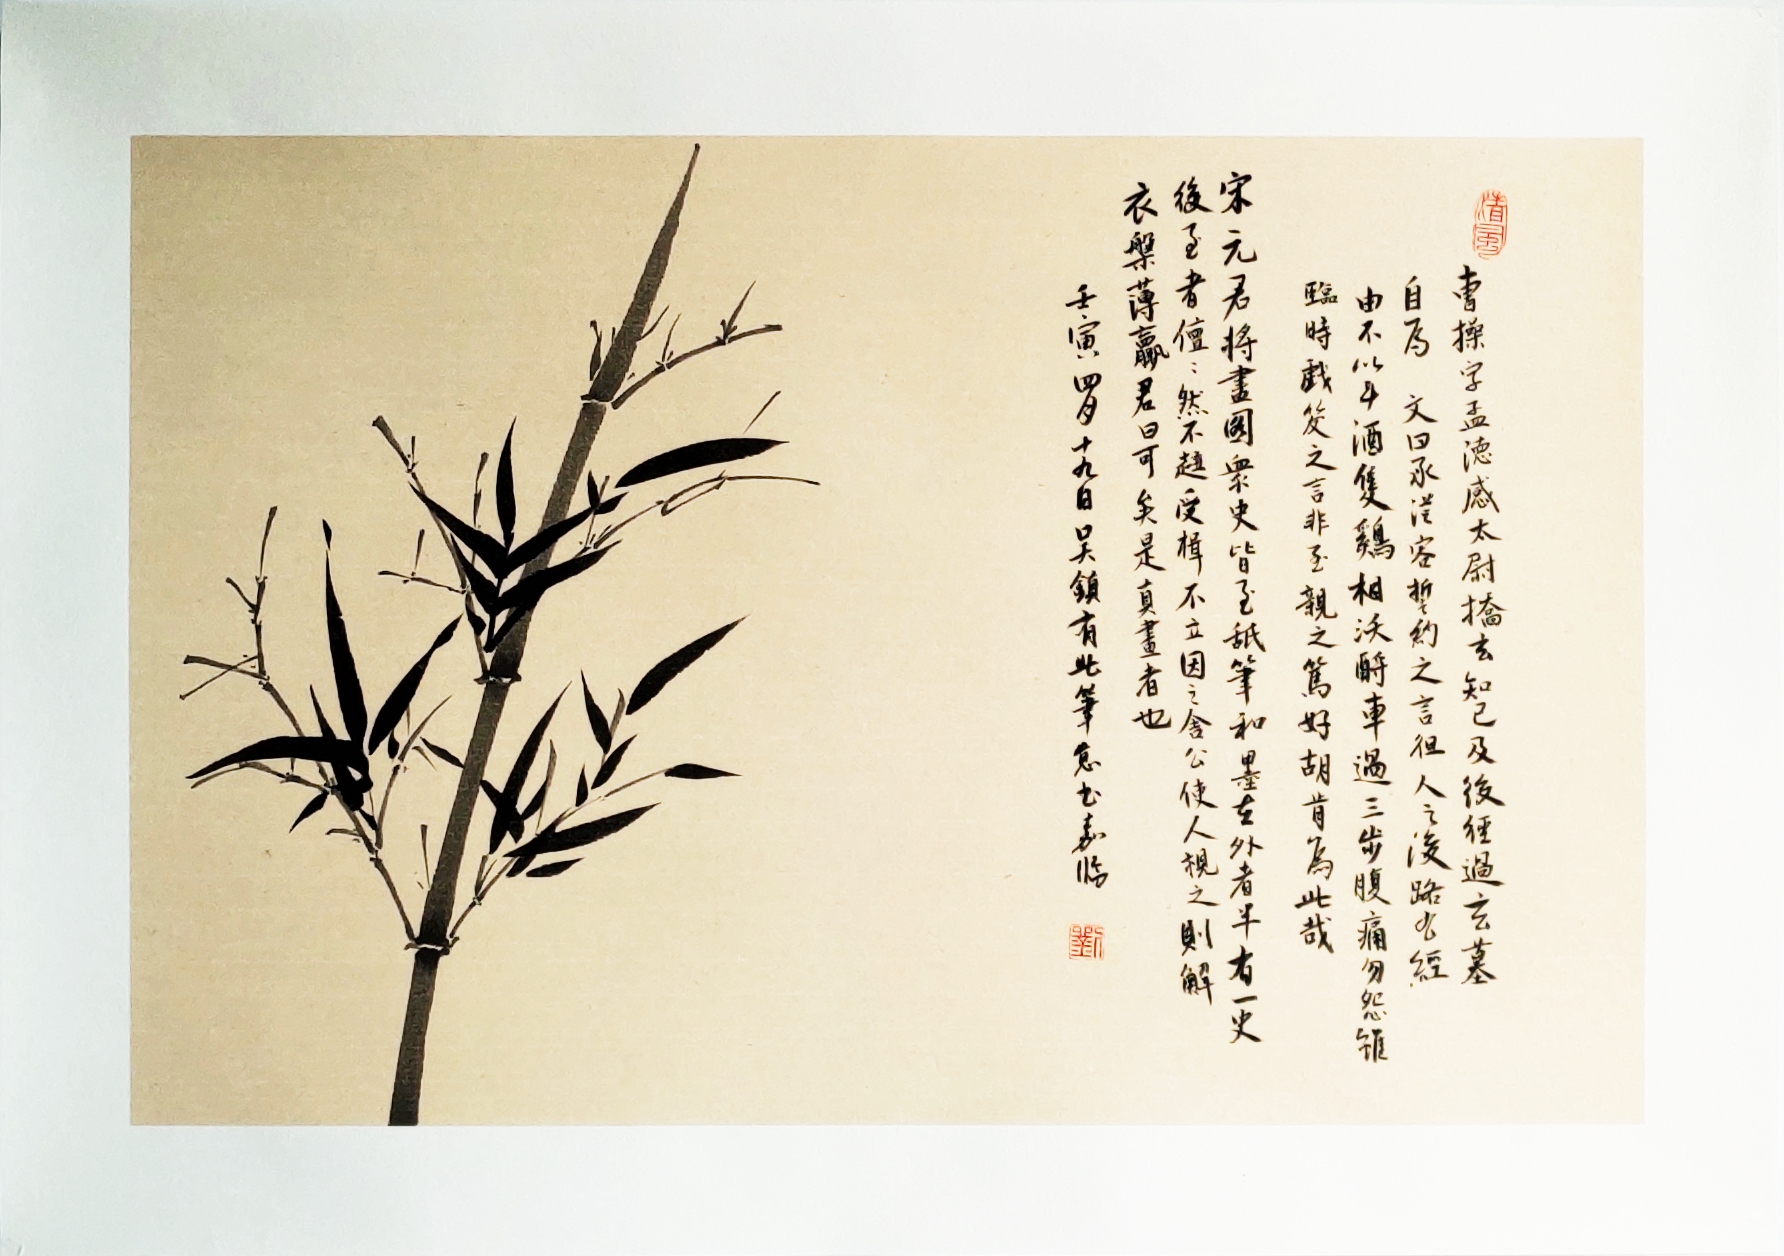 清風
曹操字孟德感太尉橋玄知己及後經過玄墓
自為 文曰承從容誓約之言徂人之後路有經
由不以斗酒隻鷄相沃酹車過三步腹痛勿怨雖
臨時戲笑之言非至親之篤好胡肯為此哉
宋元君將畫圖衆史皆至舐筆和墨在外者半有一史
後至者儃〻然不趨受楫不立因之舍公使人視之則解
衣槃薄羸君曰可矣是真畫者也
壬寅四月十九日吳鎮有此筆意 嘉臨
劉